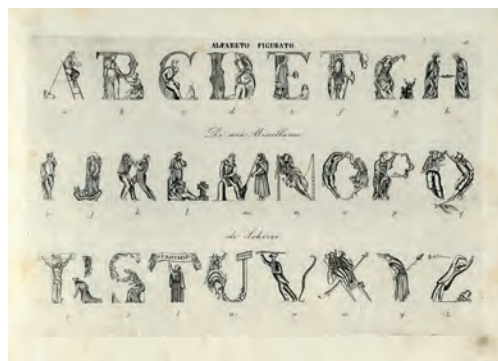 ALFABETO FIGURATO
A B C D E F G H
a b c d e f g h
Da una Miscellanea
I J K L M N O P Q
i j k l m n o p q
di Scherzi
R S T U V X Y Z
r s t u v x y z